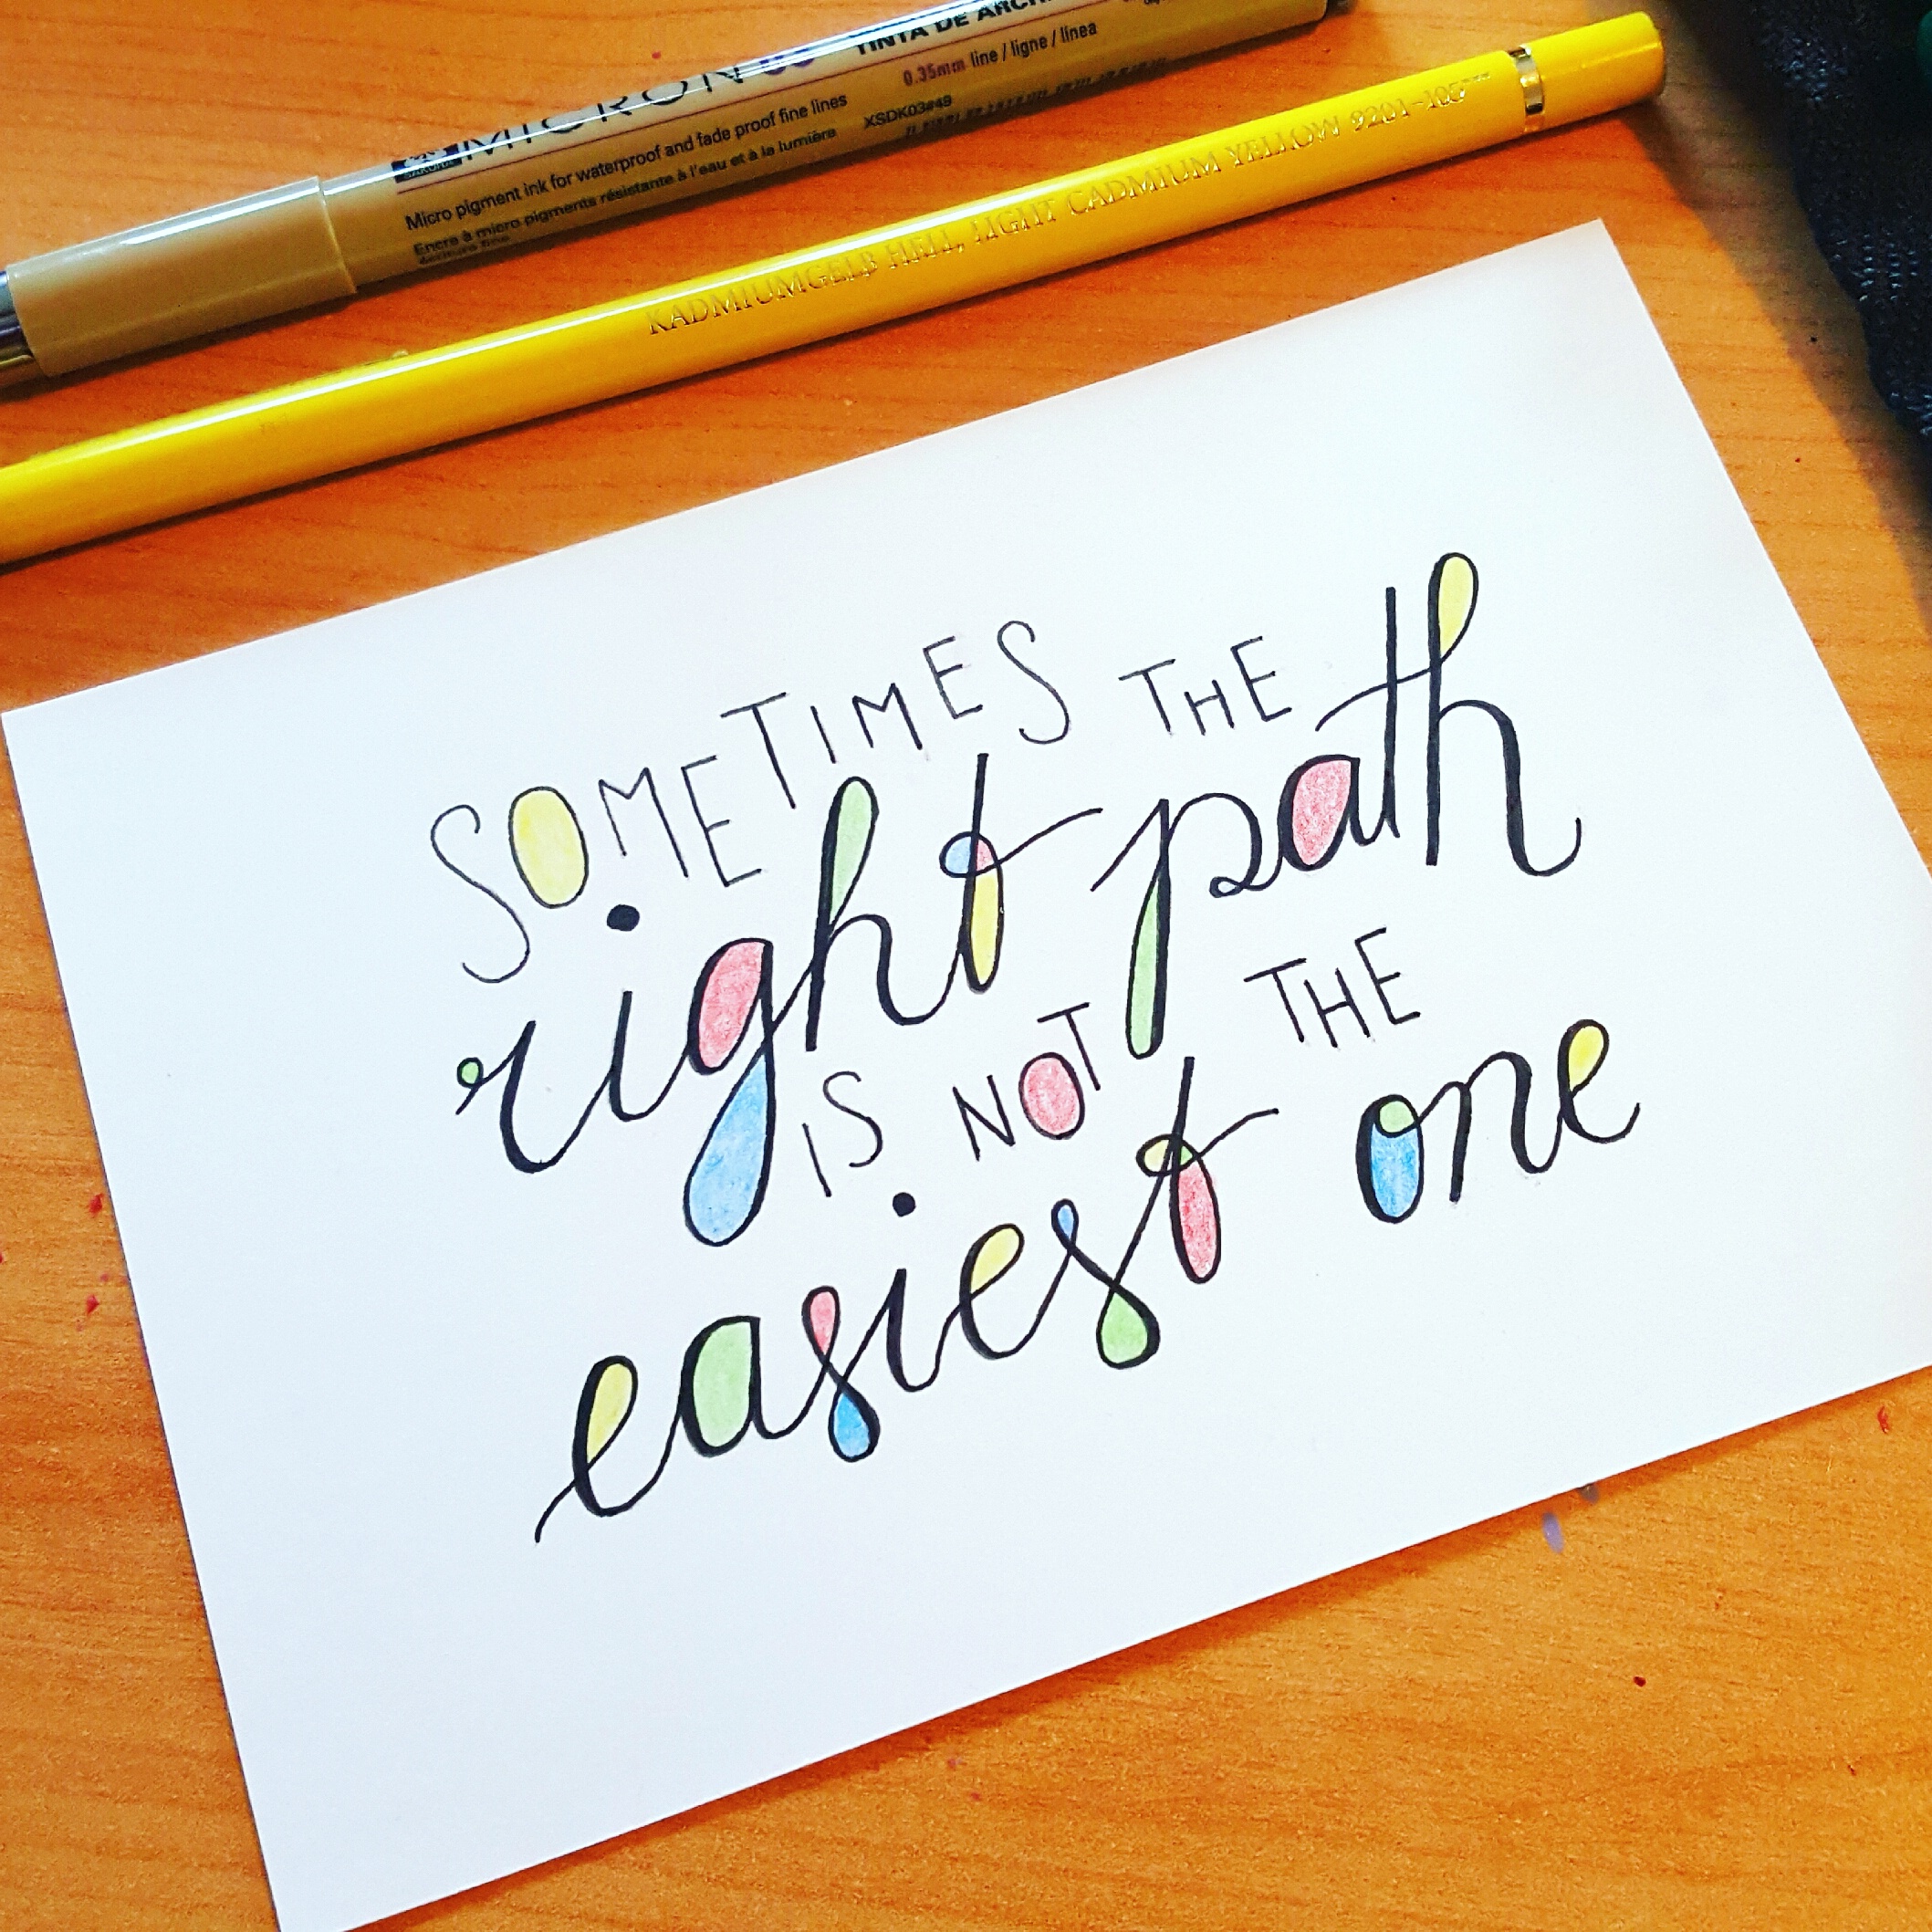 MICRON
TINTA DE
0.35mm line / ligne / línea
Micro pigment ink for waterproof and fade proof fine lines
XSDK03#49
Encre à micro pigments résistante à l'eau et à la lumière
KADMIUMGELB HELL, LIGHT CADMIUM YELLOW 9201-105***
SOMETIMES THE
right path
IS NOT THE
easiest one